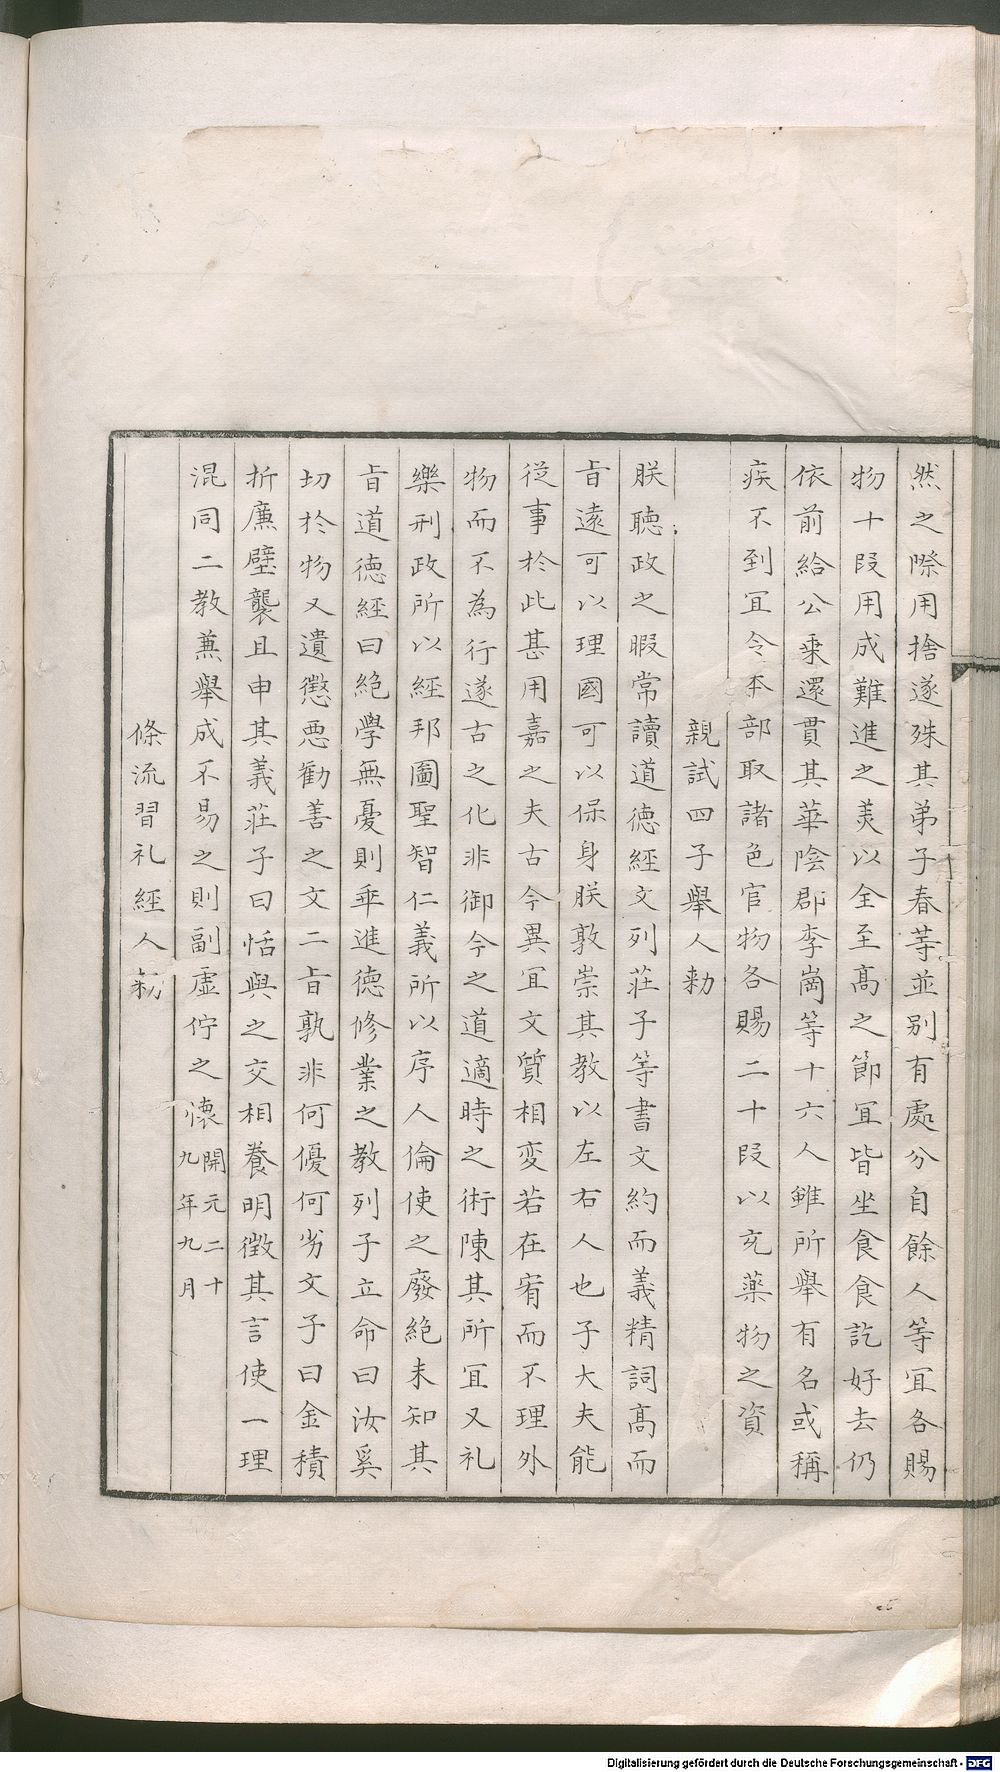 然之際用捨遂殊其弟子春等並别有處分自餘人等宜各賜
物十段用成難進之美以全至高之節宜皆坐食食訖好去仍
依前給公乗還貫其華陰郡李崗等十六人雖所舉有名或稱
疾不到宜令本部取諸色官物各賜二十段以充藥物之資
親試四子舉人勑
朕聽政之暇常讀道德經文列莊子等書文約而義精詞高而
旨遠可以理國可以保身朕敦崇其教以左右人也子大夫能
從事於此甚用嘉之夫古今異宜文質相変若在宥而不理外
物而不為行遂古之化非御今之道適時之術陳其所宜又礼
樂刑政所以經邦圖聖智仁義所以序人倫使之廢絶未知其
旨道德經曰絶學無憂則乖進德修業之教列子立命曰汝奚
功於物又遺懲惡勸善之文二旨孰非何優何劣文子曰金積
折廉壁襲且申其義莊子曰恬與之交相養明徴其言使一理
混同二教兼舉成不易之則副虚佇之懷開元二十
九年九月
條流習礼經人勑
Digitalisierung gefördert durch die Deutsche Forschungsgemeinschaft - DFG